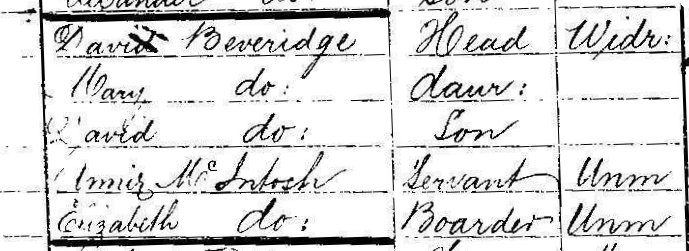 Son
David Beveridge Head Widr:
Mary do: daur:
David do: Son
Annie McIntosh Servant Unm
Elizabeth do: Boarder Unm